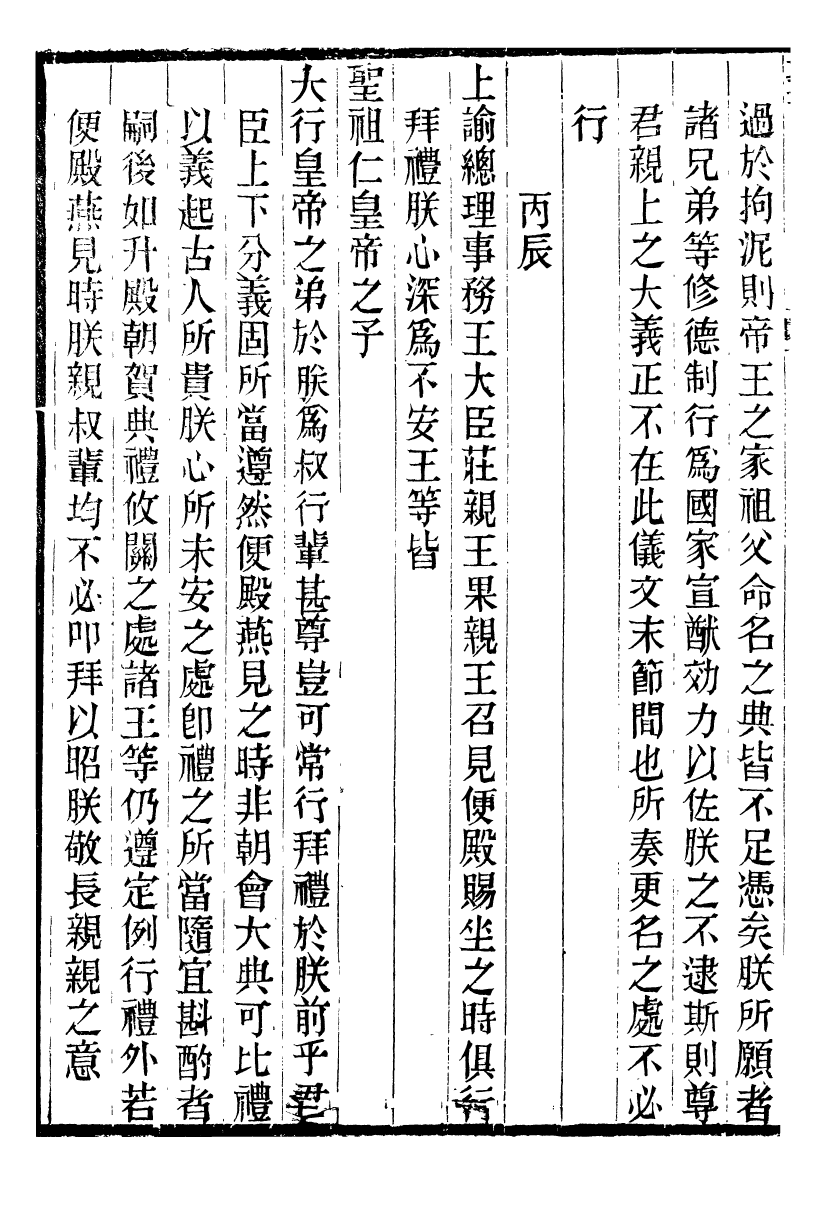 過於拘泥則帝王之家祖父命名之典皆不足憑矣朕所願者
諸兄弟等修德制行爲國家宣猷効力以佐朕之不逮斯則尊
君親上之大義正不在此儀文末節間也所奏更名之處不必
行
丙辰
上諭總理事務王大臣莊親王果親王召見便殿賜坐之時俱行
拜禮朕心深爲不安王等皆
聖祖仁皇帝之子
大行皇帝之弟於朕爲叔行輩甚尊豈可常行拜禮於朕前乎君
臣上下分義固所當遵然便殿燕見之時非朝會大典可比禮
以義起古人所貴朕心所未安之處卽禮之所當隨宜斟酌者
嗣後如升殿朝賀典禮攸關之處諸王等仍遵定例行禮外若
便殿燕見時朕親叔輩均不必叩拜以昭朕敬長親親之意